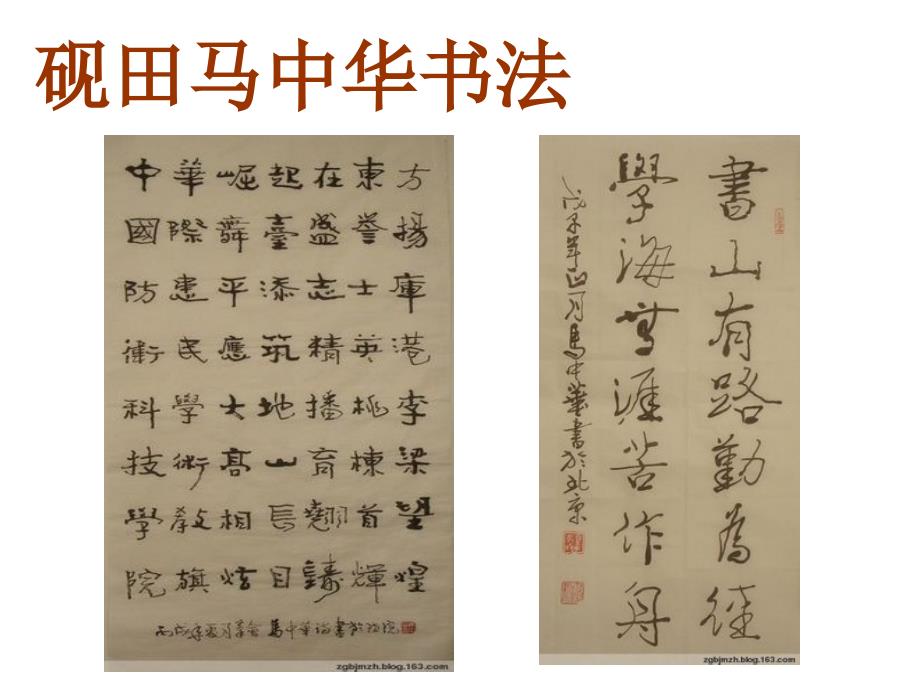 砚田马中华书法
中華崛起在東方
國際舞臺盛譽揚
防患平添志士庫
衛民應筑精英港
科學大地播桃李
技術高山育棟梁
學教相長翹首望
院旗炫目鑄輝煌
丙戌年夏月 馬中華詩書於
zgbjmzh.blog.163.com
書山有路勤為徑
學海無涯苦作舟
戊子年正月馬中華書於北京
zgbjmzh.blog.163.com